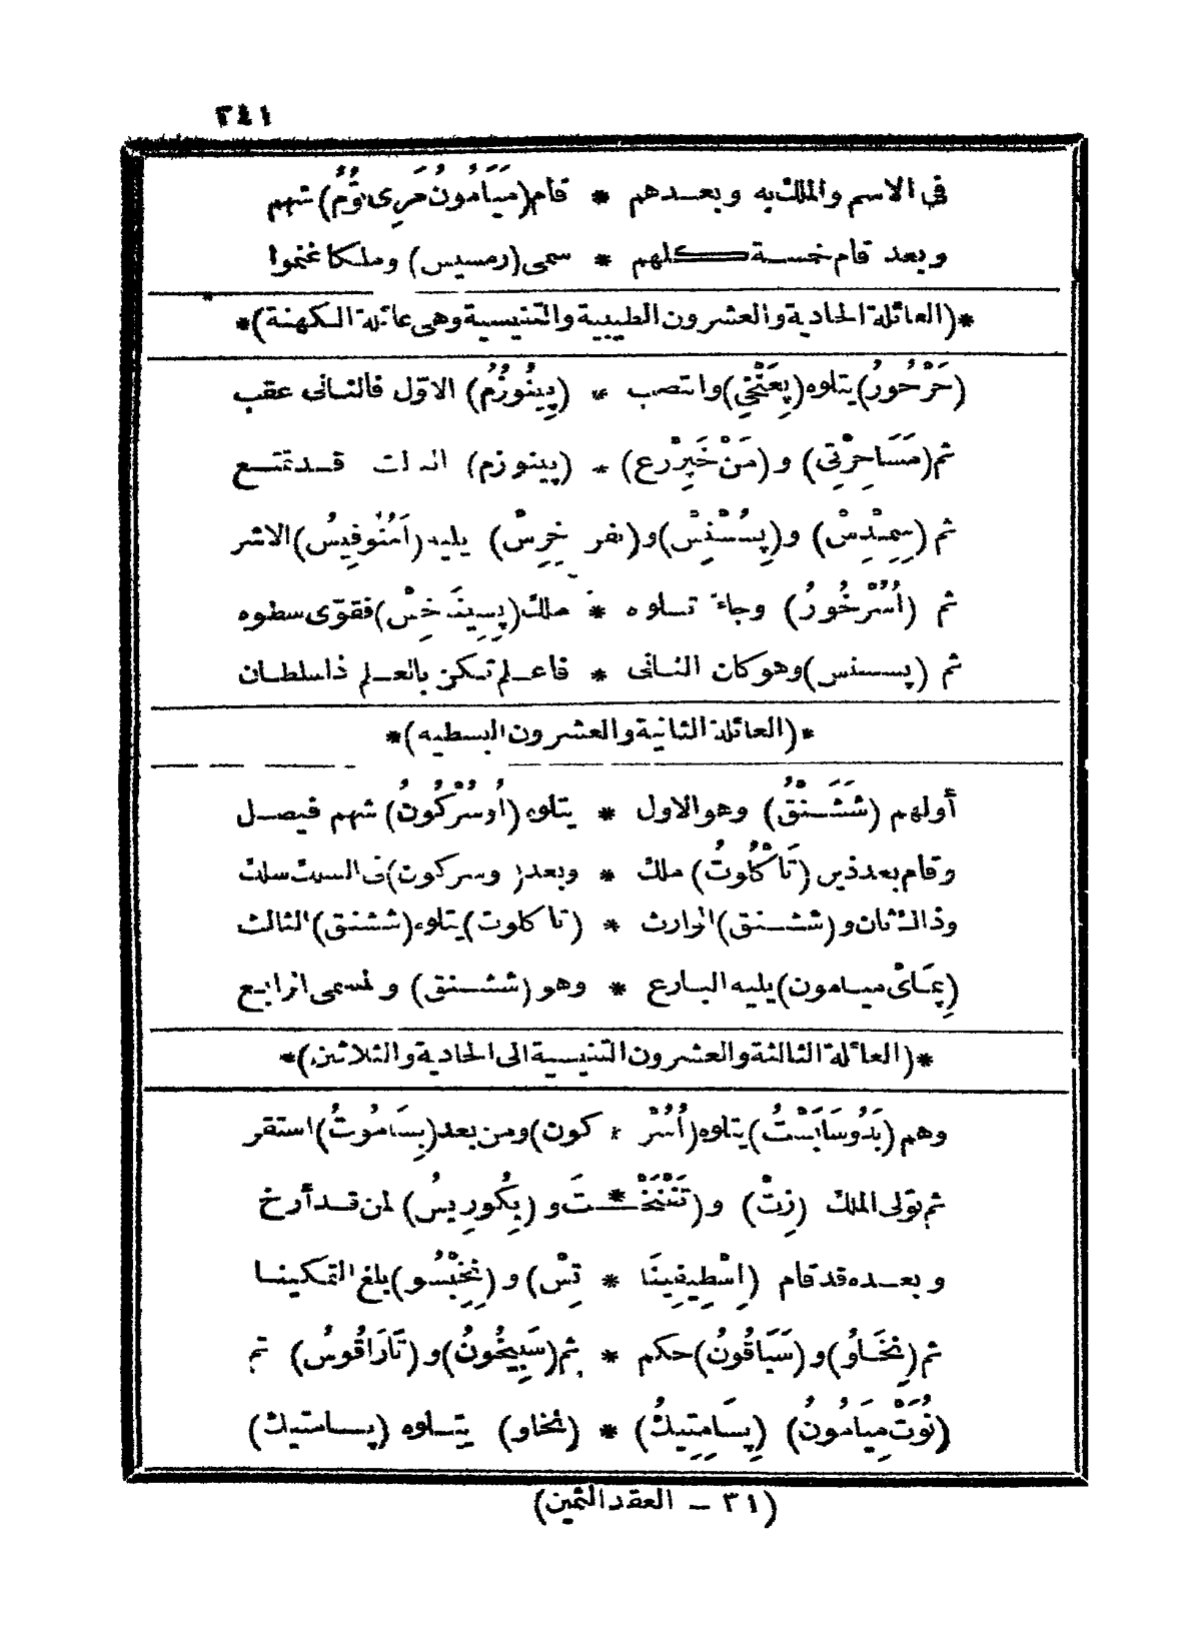 ٢٤١
في الاسم والملك به وبعدهم * قام (مَيَامُونُ مَرِي تُوُمُ) شهم
وبعد قام خمسة كلهم * سمى (رمسيس) وملكا غنموا
*(العائلة الحادية والعشرون الطيبية والتنيسية وهى عائلة الكهنة)*
(حَرْحُورُ) يتلوه (بِعَنْخِي) وانتصب * (بِينُوزُمُ) الاوّل فالثانى عقب
ثم (مَسَاحِرْتِي) و (مَنْ خَبِرْرع) * (پينوزم) قد تمتع
ثم (سِمِنْدِسْ) و (پِسُسْنِسْ) و (نفر خِرِسْ) يليه (اَمُنُوفِيسُ) الاشر
ثم (اُسُرْخُورُ) وجاء تلوه * ملك (پِسِينَخِسْ) فقوّى سطوه
ثم (پسسنس) وهو كان الثانى * فاعلم تكن بالعلم ذا سلطان
*(العائلة الثانية والعشرون البسطيه)*
أولهم (شَشَنْقُ) وهو الاول * يتلوه (اُوسُرْكُونُ) شهم فيصل
وقام بعد ذين (تَاكْلُوتُ) ملك * وبعد (وسركون) فى السبت سلك
وذاك ثان و (ششنق) الوارث * (تاكلوت) يتلوه (ششنق) الثالث
(پِمَاىْ ميامون) يليه البارع * وهو (ششنق) والمسمى الرابع
*(العائلة الثالثة والعشرون التنيسية الى الحادية والثلاثين)*
وهم (بَدُوسَابَسْتُ) يتلوه (اُسُرْ * كون) ومن بعد (بِسَامُوتُ) استقر
ثم تولى الملك (زِتْ) و (تَفْنَخْـ * ـتَ و (بِكُورِيسُ) لمن قد أرخ
وبعده قد قام (اِسْطِيفِينَا * تِسْ) و (نِخِبْسُو) بلغ التمكينا
ثم (نِخَاوُ) و (سَبَاقُونُ) حكم * ثم (سَبِيخُونُ) و (تَارَاقُوسُ) تم
(نُوُتْ مِيَامُونُ) (پِسَامِتِيكُ) * (نخاو) يتلوه (پسامتيك)
(٣١ – العقد الثمين)